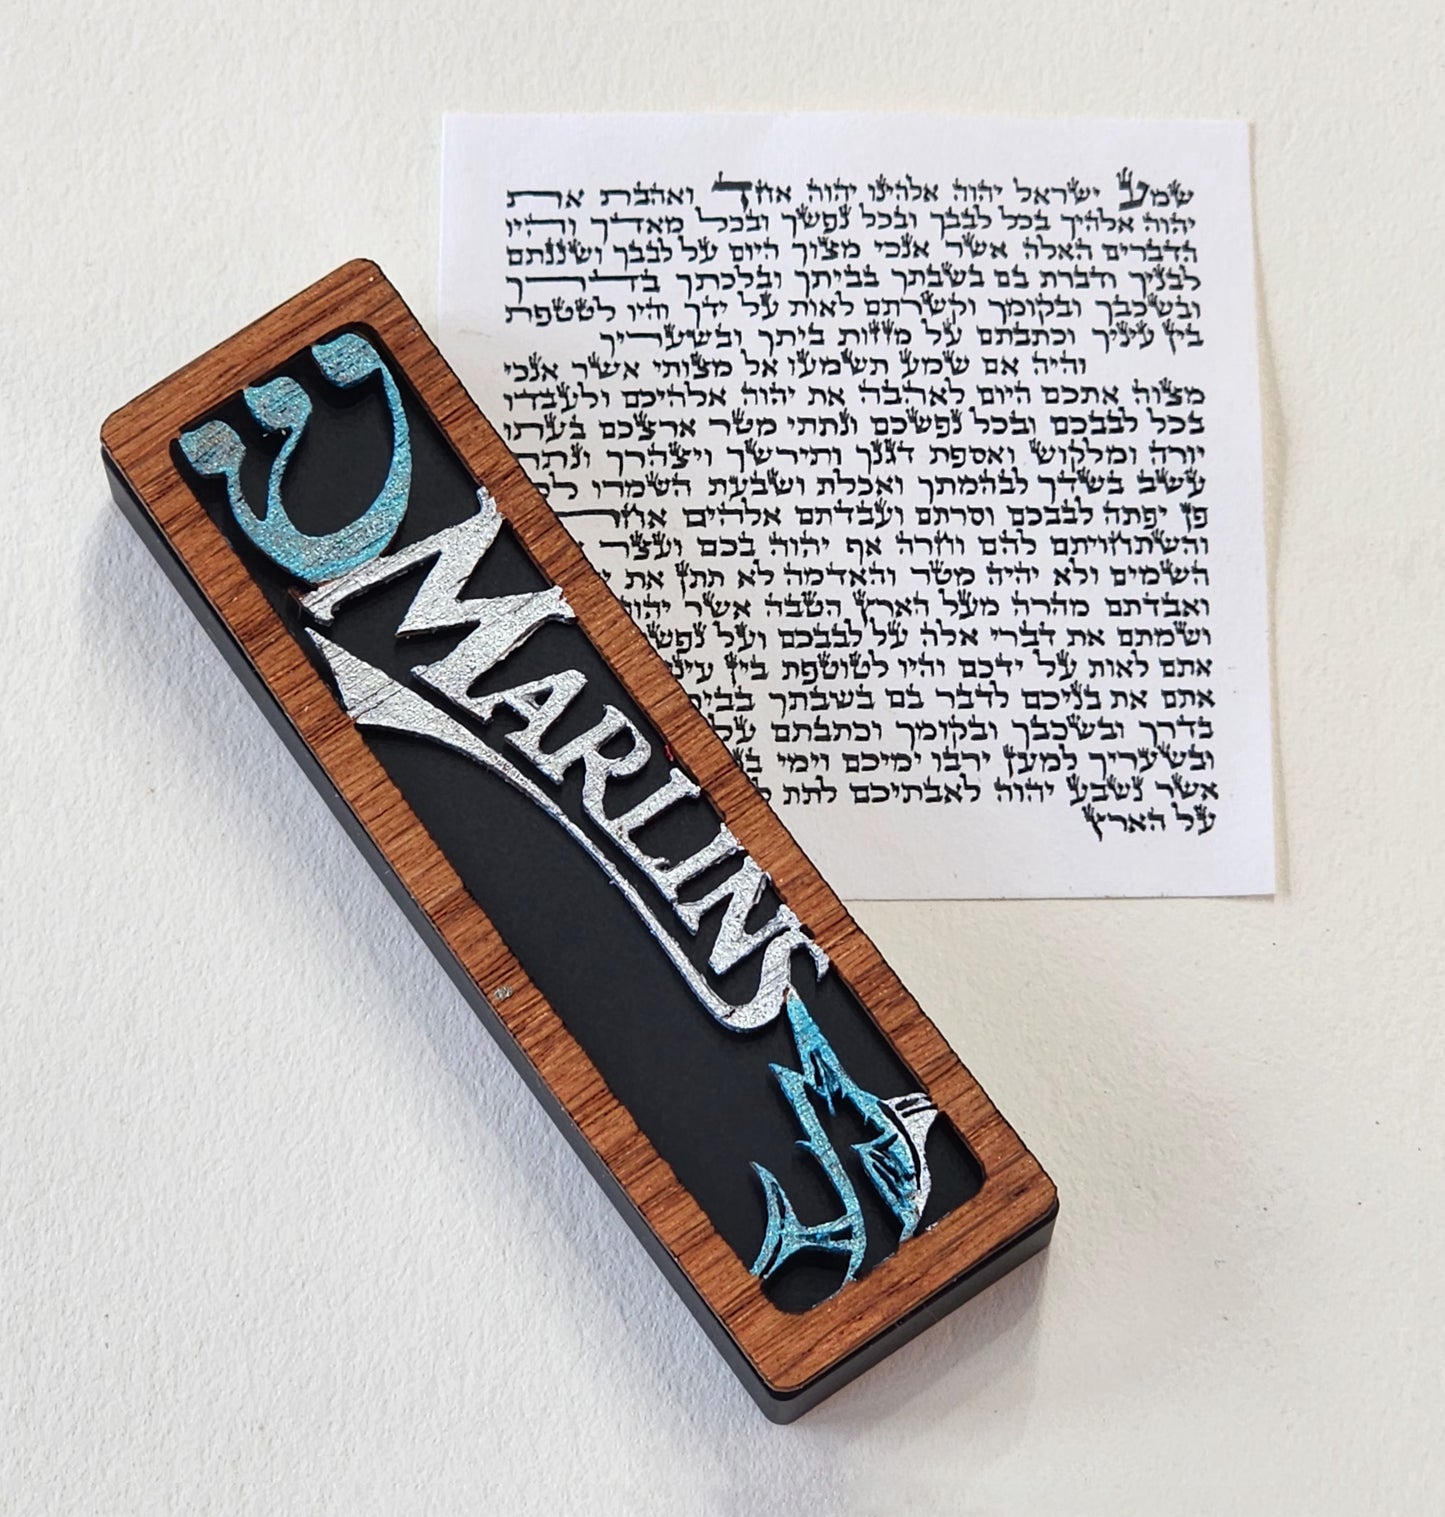 ש
MARLINS
שמע ישראל יהוה אלהינו יהוה אחד ואהבת את
יהוה אלהיך בכל לבבך ובכל נפשך ובכל מאדך והיו
הדברים האלה אשר אנכי מצוך היום על לבבך ושננתם
לבניך ודברת בם בשבתך בביתך ובלכתך בדרך
ובשכבך ובקומך וקשרתם לאות על ידך והיו לטטפת
בין עיניך וכתבתם על מזזות ביתך ובשעריך
והיה אם שמע תשמעו אל מצותי אשר אנכי
מצוה אתכם היום לאהבה את יהוה אלהיכם ולעבדו
בכל לבבכם ובכל נפשכם ונתתי מטר ארצכם בעתו
יורה ומלקוש ואספת דגנך ותירשך ויצהרך
עשב בשדך לבהמתך ואכלת ושבעת השמרו
פן יפתה לבבכם וסרתם ועבדתם אלהים
והשתחויתם להם וחרה אף יהוה בכם ועצר
השמים ולא יהיה מטר והאדמה לא תתן את
ואבדתם מהרה מעל הארץ הטבה אשר יהוה
ושמתם את דברי אלה על לבבכם ועל
אתם לאות על ידכם והיו לטוטפת בין
אתם את בניכם לדבר בם בשבתך
בדרך ובשכבך ובקומך וכתבתם על
ובשעריך למען ירבו ימיכם וימי
אשר נשבע יהוה לאבתיכם לתת
על הארץ